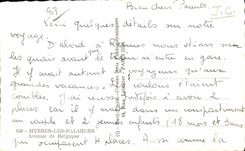 Bien chers Parents
J.C.
Voici quelques détails sur notre
voyage.
D'abord à Rennes nous étions sur
les quais avant que le train ne entre en gare.
Il y avait autant de voyageurs qu'aux
grandes vacances, les couloirs étaient
combles, J'ai réussi toutefois à avoir 2
places car il y avait dans un compartiment
un couple et 2 jeunes enfants (18 mois et 3 ans
qui occupaient 4 places. Aussi comme la
HYERES-LES-PALMIERS
Avenue de Belgique